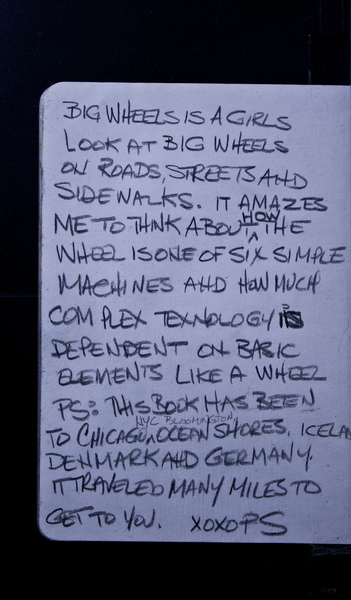 BIG WHEELS IS A GIRLS
LOOK AT BIG WHEELS
ON ROADS, STREETS AND
SIDEWALKS. IT AMAZES
ME TO THINK ABOUT HOW THE
WHEEL IS ONE OF SIX SIMPLE
MACHINES AND HOW MUCH
COMPLEX TEXNOLOGY IS
DEPENDENT ON BASIC
ELEMENTS LIKE A WHEEL
PS: THIS BOOK HAS BEEN
TO CHICAGO, NYC BLOOMINGTON, OCEAN SHORES, ICELAN
DENMARK AND GERMANY.
IT TRAVELED MANY MILES TO
GET TO YOU. XOXOPS